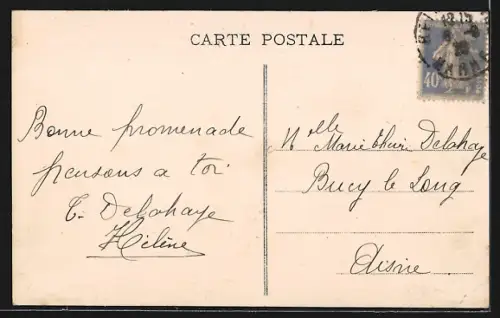 CARTE POSTALE
Bonne promenade
pensons a toi
T. Delahaye
Hélène
Mlle Marie Delahaye
Bucy le Long
Aisne
40